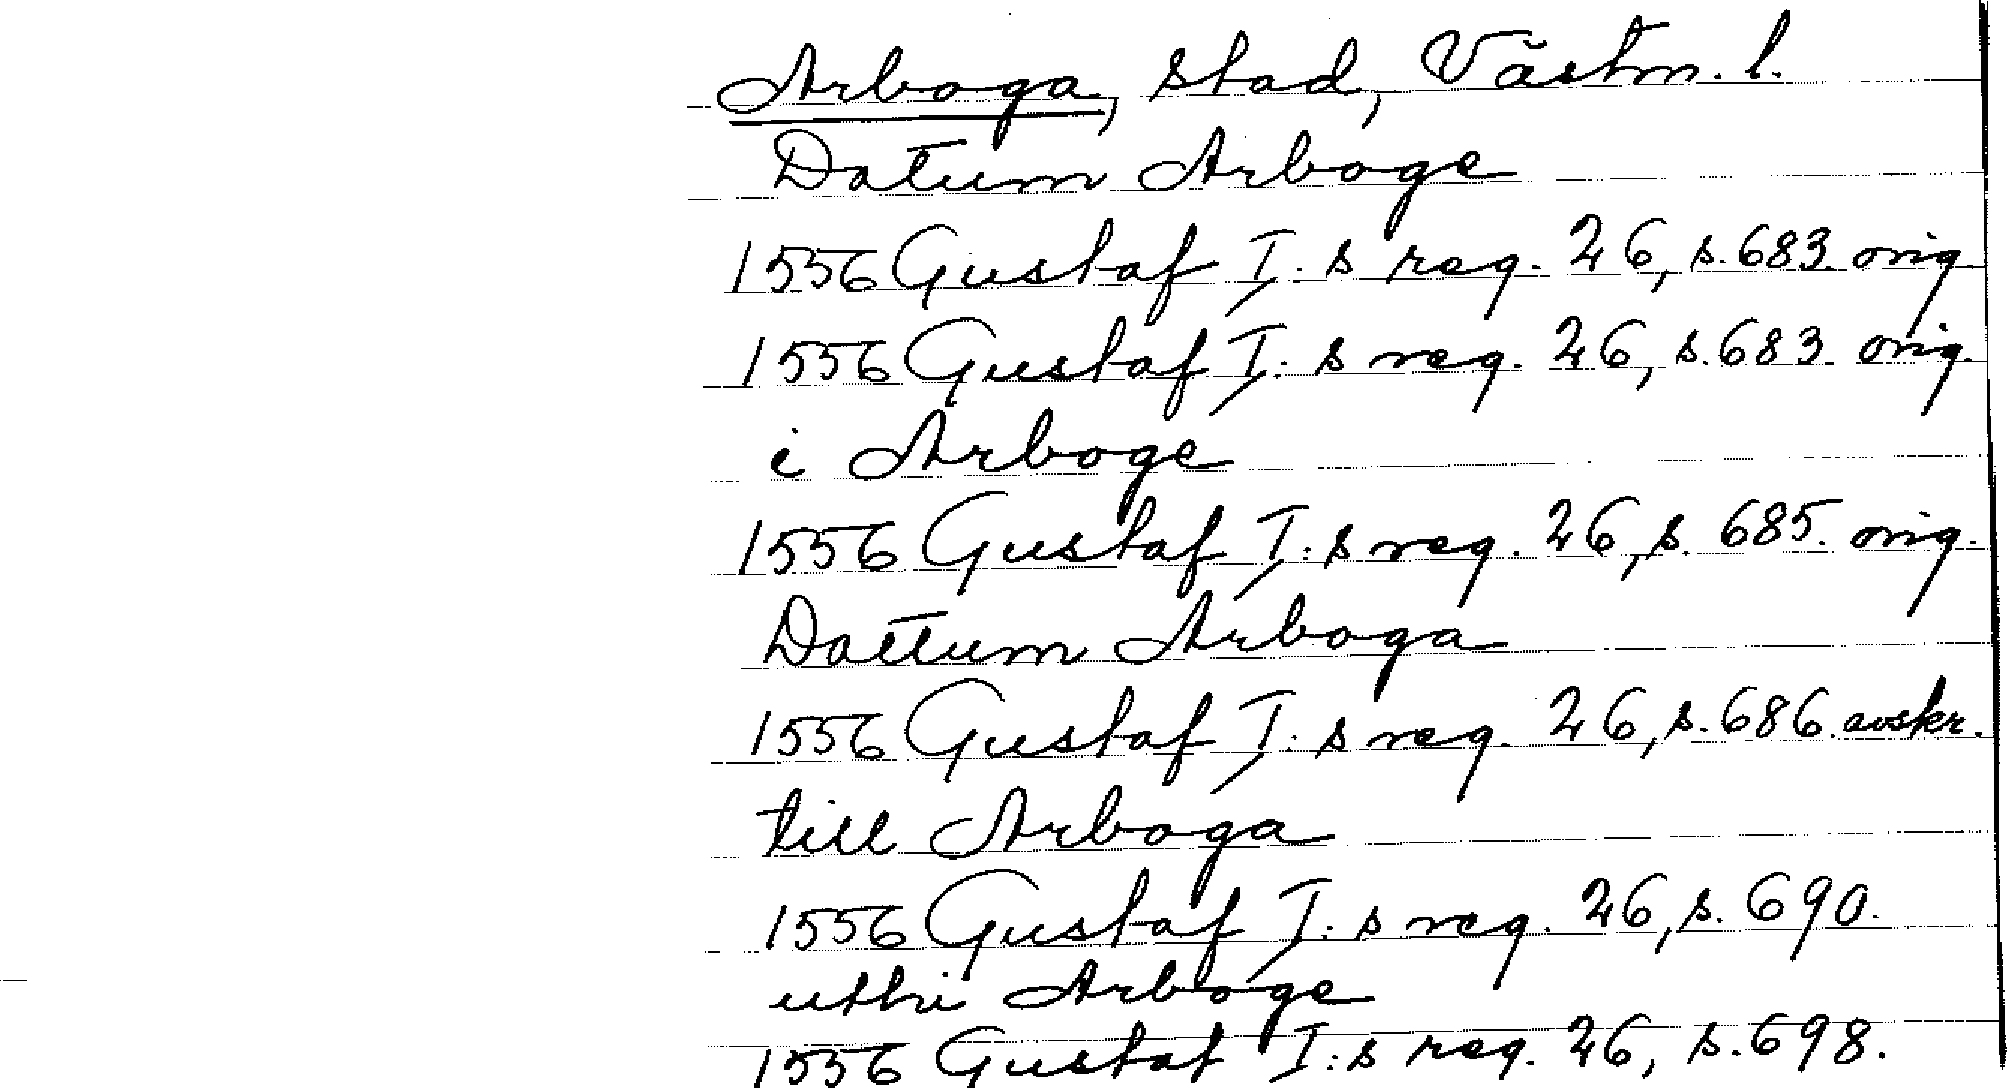 Arboga, stad, Västm. l.
Datum Arboge
1556 Gustaf I:s reg. 26, s. 683. orig
1556 Gustaf I:s reg. 26, s. 683. orig.
i Arboge
1556 Gustaf I:s reg. 26, s. 685. orig.
Dattum Arboga
1556 Gustaf I:s reg. 26, s. 686. avskr.
till Arboga
1556 Gustaf I:s reg. 26, s. 690.
uthi Arboge
1556 Gustaf I:s reg. 26, s. 698.